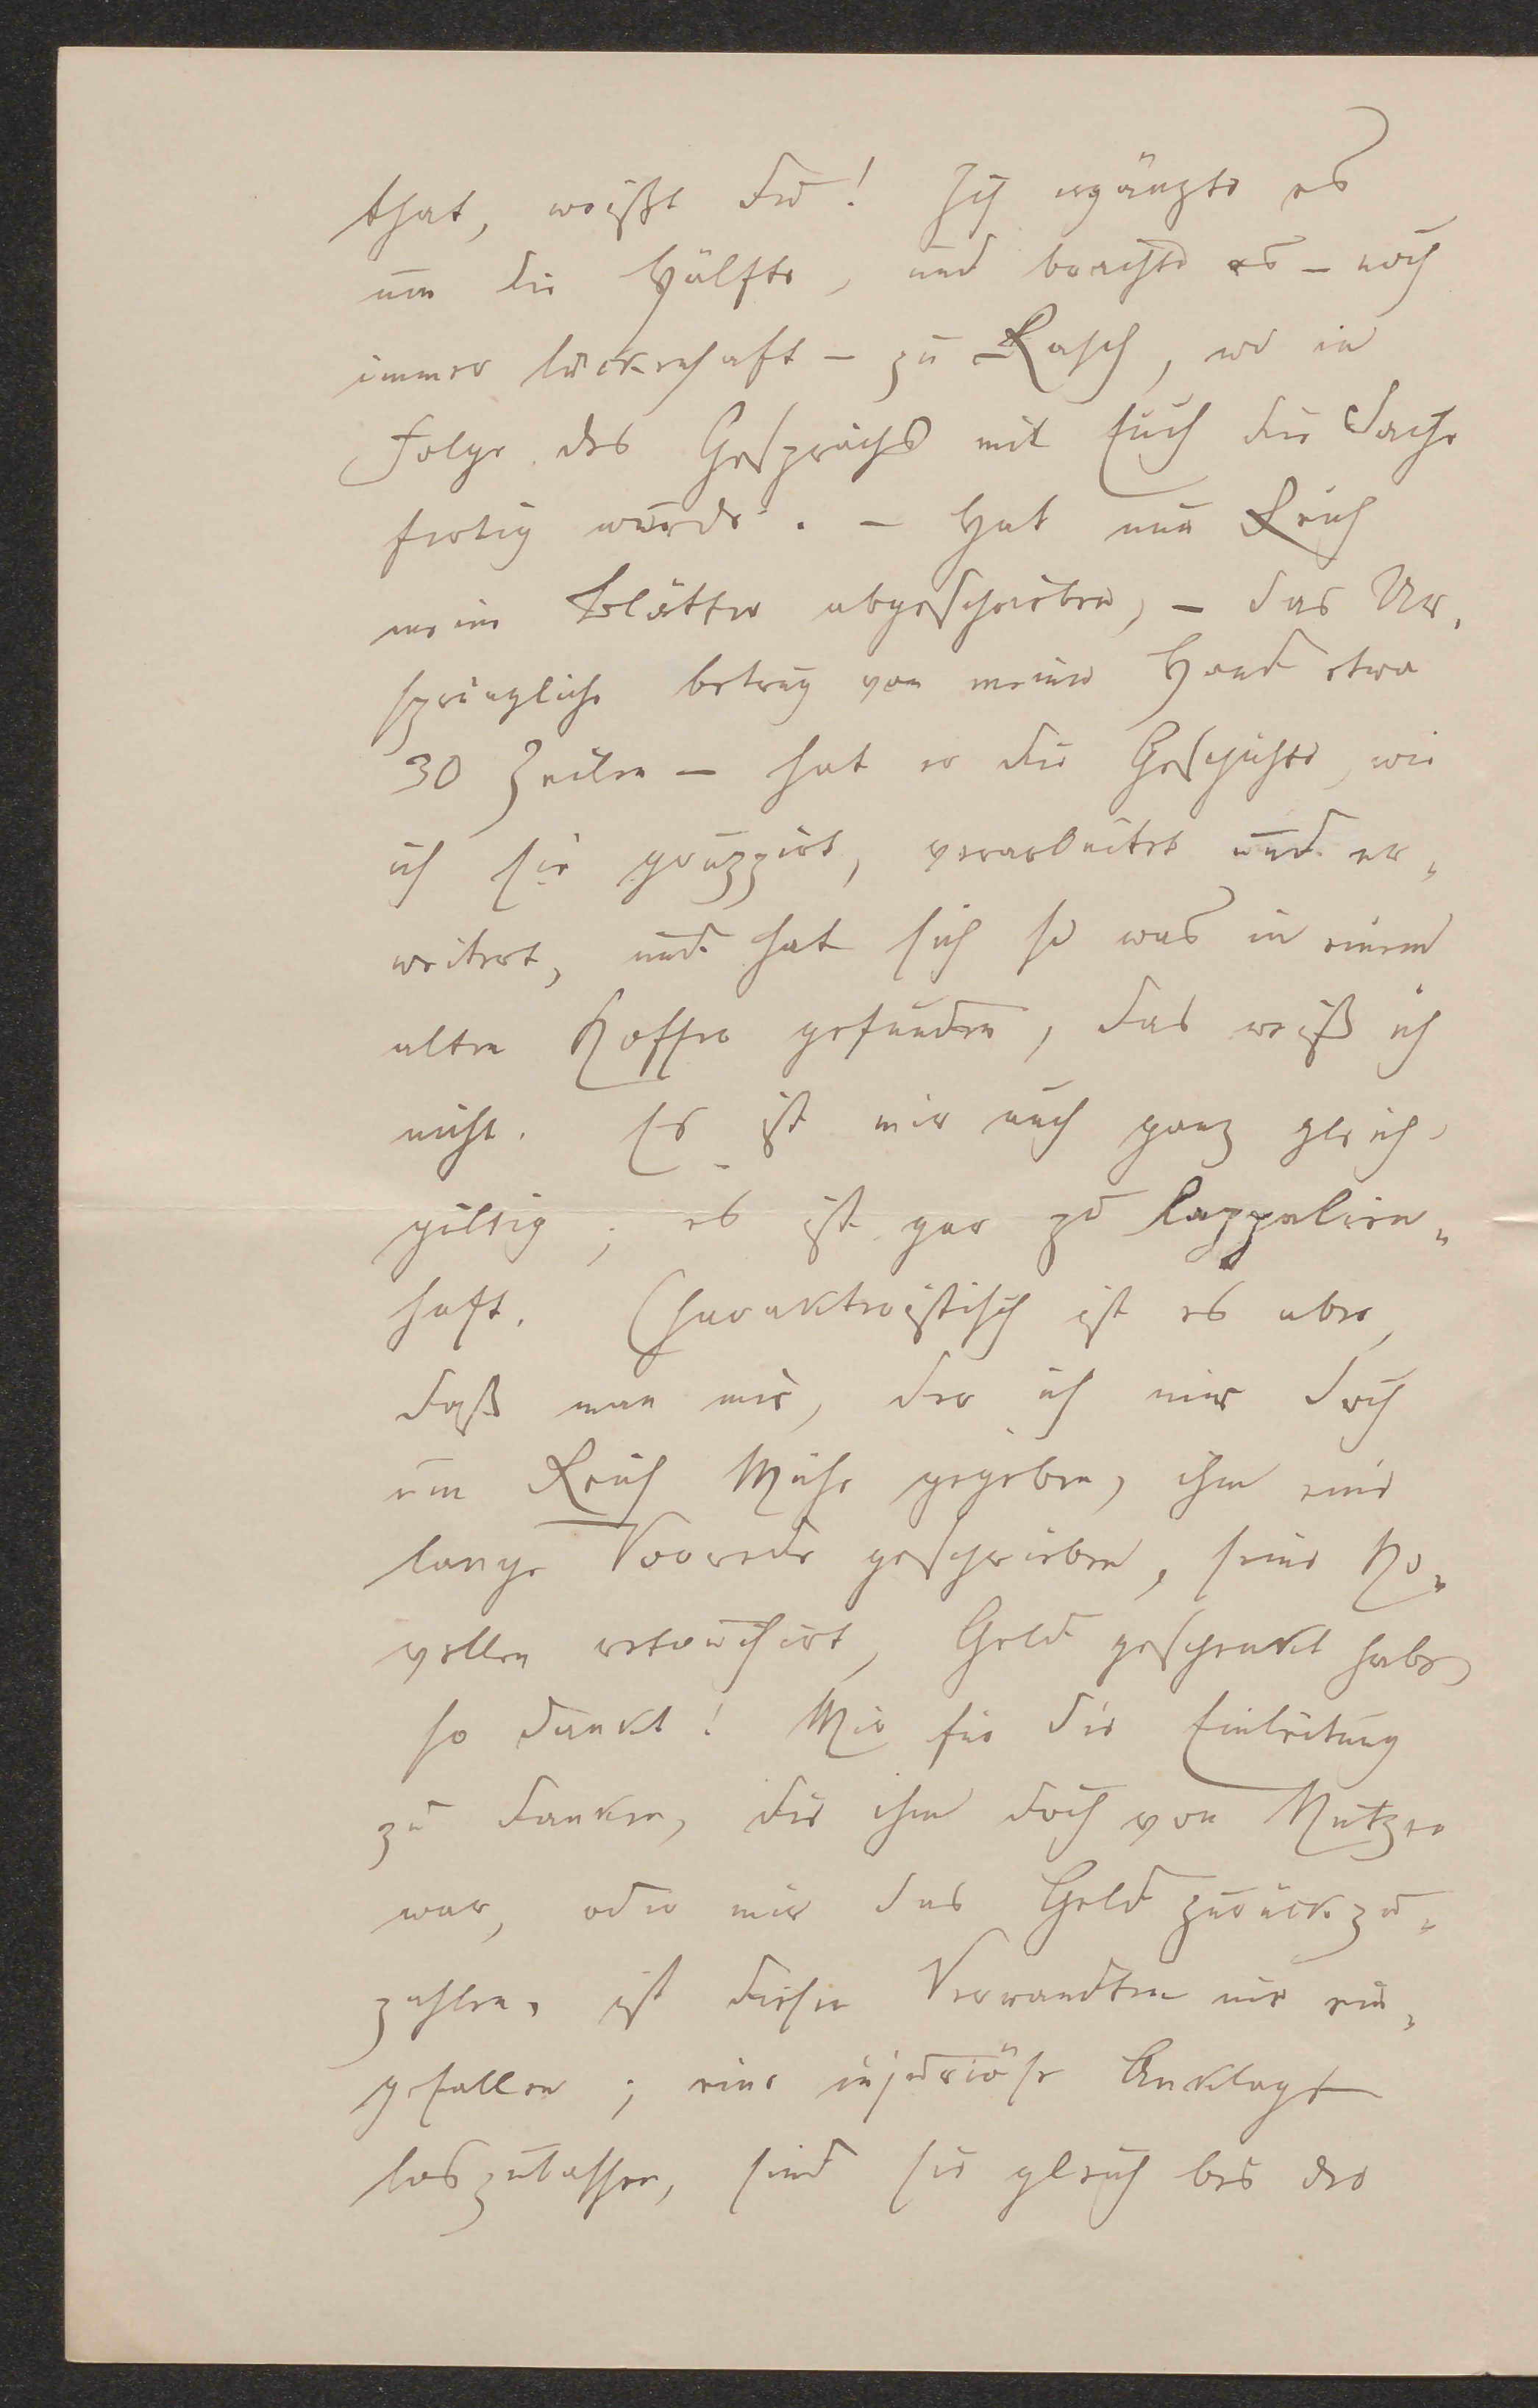 that, weißt Du! Ich ergänzte es
um die Hälfte, und brachte es – noch
immer lückenhaft – zu Rasch, wo in
Folge des Gesprächs mit Euch die Sache
fertig wurde. – Hat nun Reich
meine Blätter abgeschrieben, – das Ur-
sprüngliche betrug von meiner Hand etwa
30 Zeilen – hat er die Geschichte, wie
ich sie gruppirt, verarbeitet und er-
weitert, und hat sich so was in einem
alten Koffer gefunden, das weiß ich
nicht. Es ist mir auch ganz gleich-
giltig; es ist gar zu lappalien-
haft. Charakteristisch ist es aber,
daß man mir, der ich mir doch
um Reich Mühe gegeben, ihm eine
lange Vorrede geschrieben, seine No-
vellen retouchirt, Geld geschenkt habe,
so dankt! Mir für die Einleitung
zu danken, die ihm doch von Nutzen
war, oder mir das Geld zurückzu-
zahlen, ist diesen Verwandten nie ein-
gefallen; eine injuriöse Anklage
loszulassen, sind sie gleich bei der